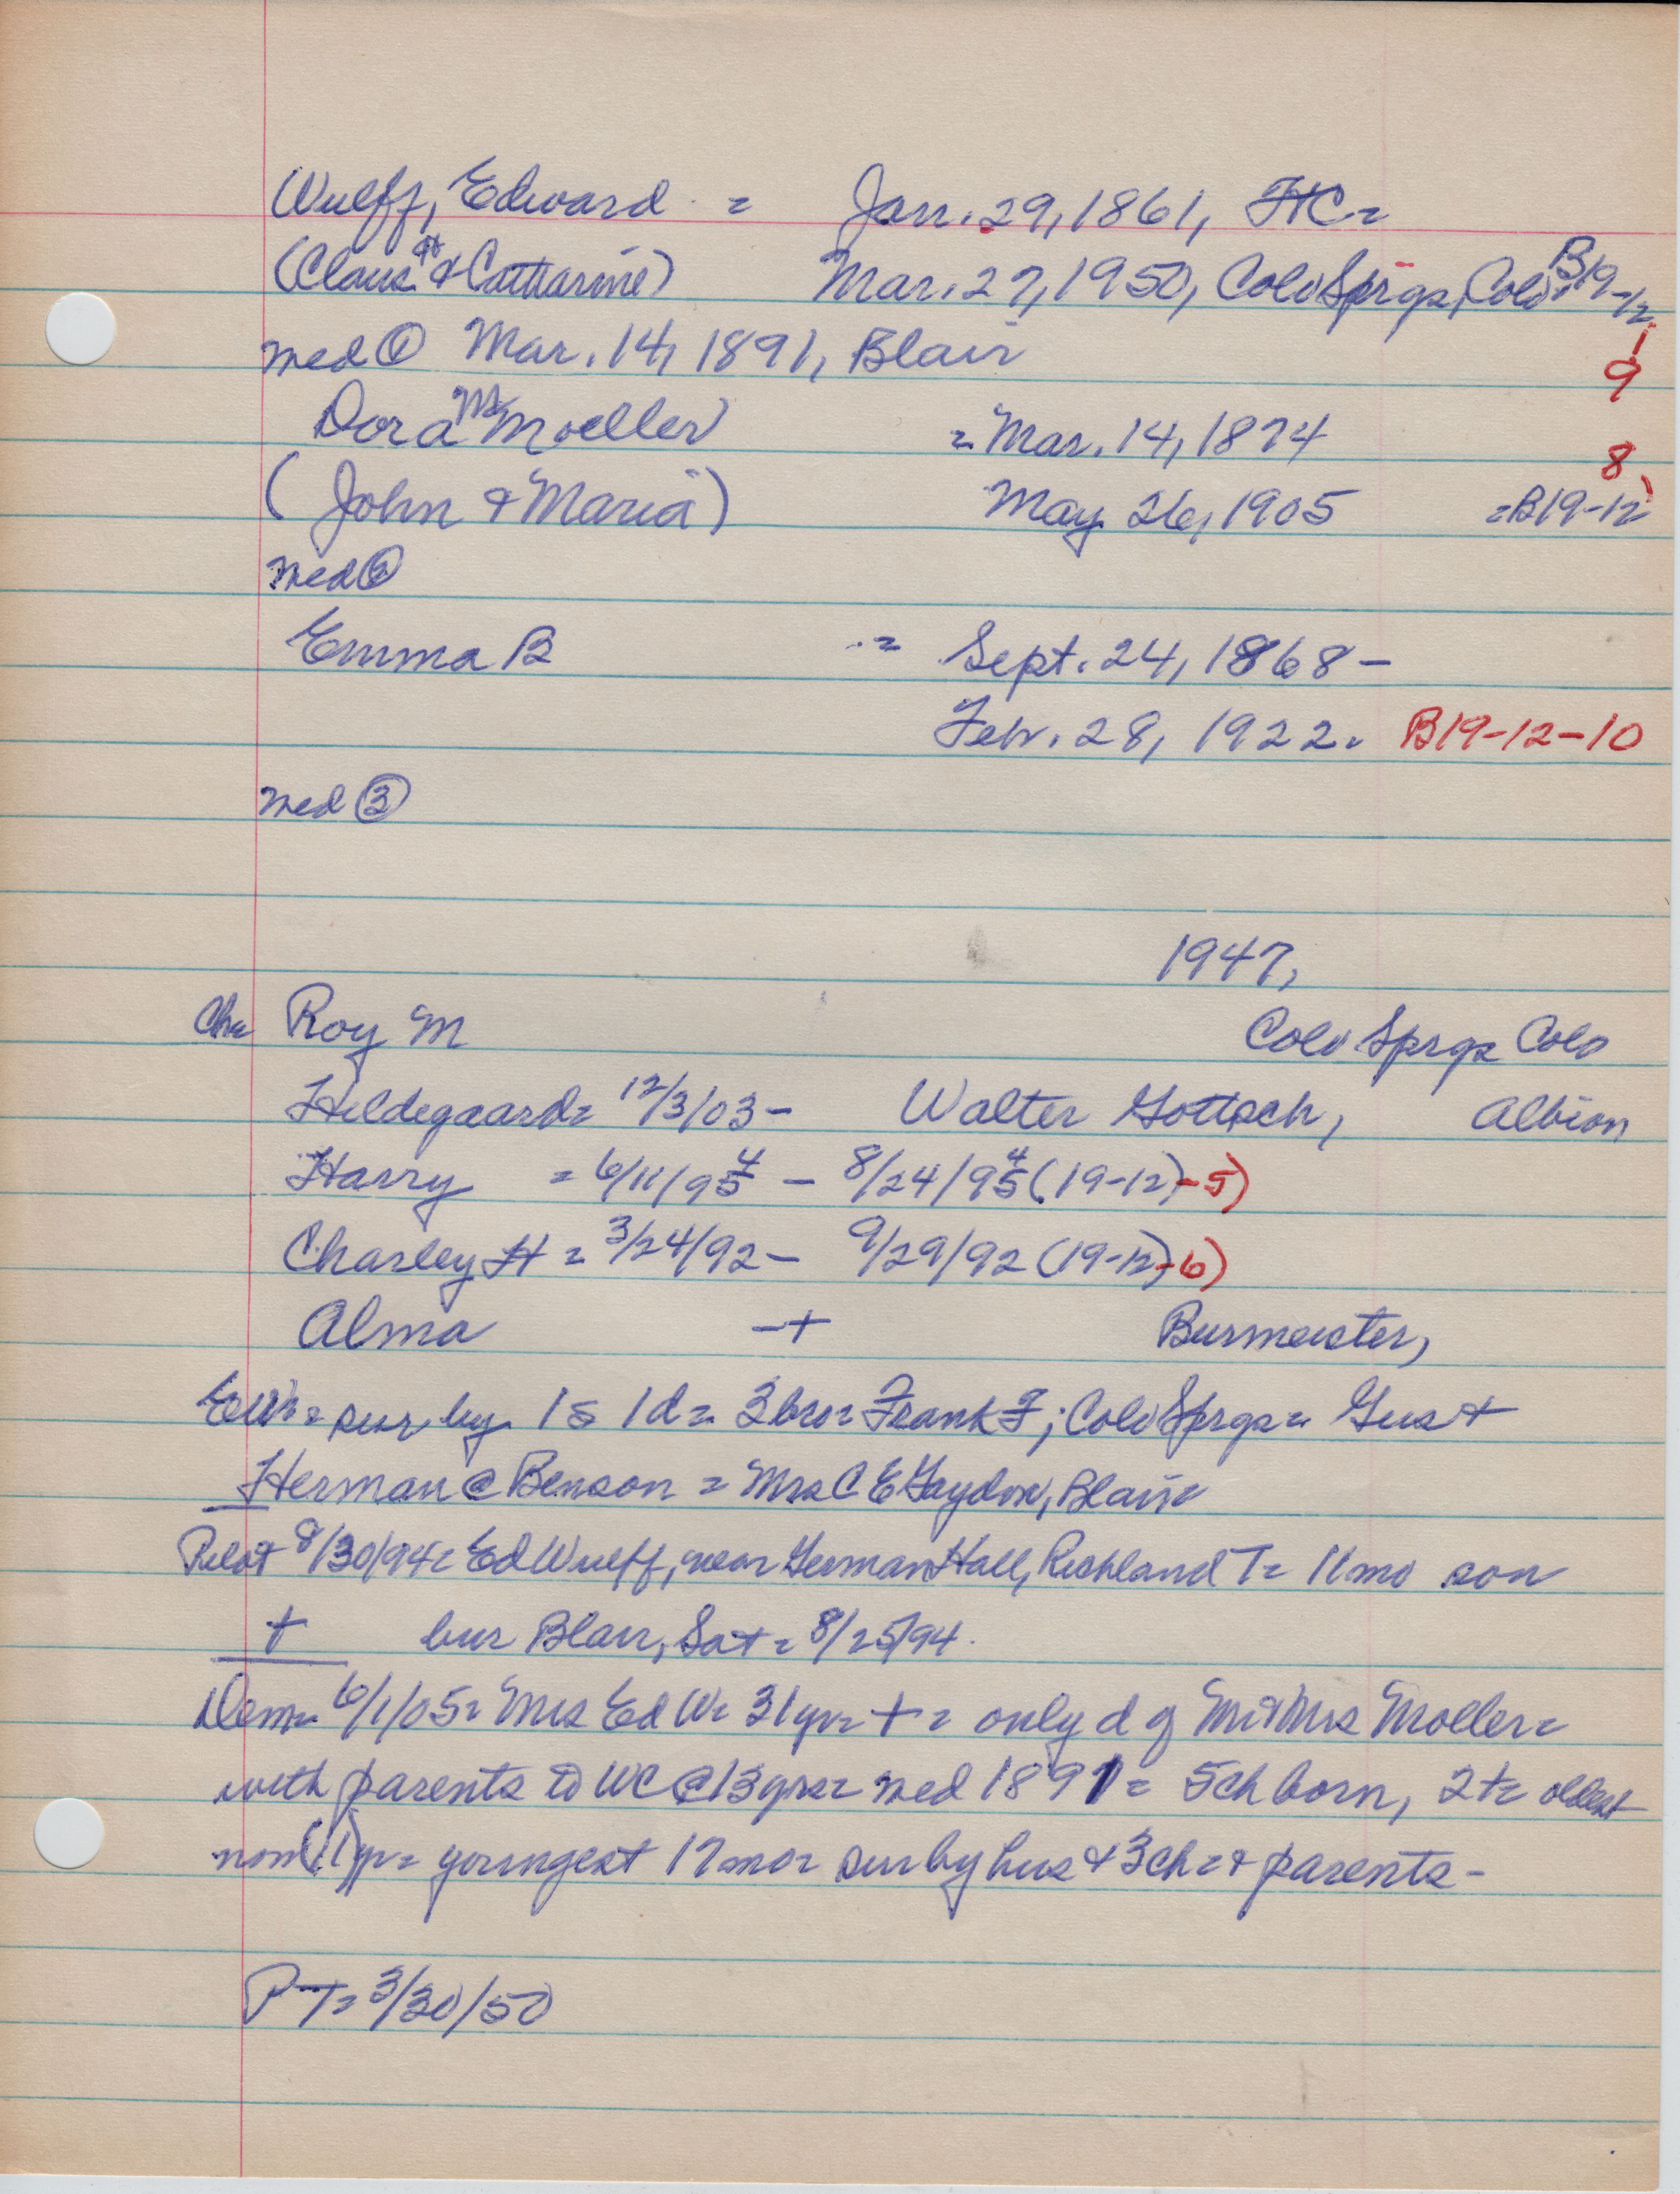 Wulff, Edward = Jan. 29, 1861, HC=
(Claus H & Catharine) Mar. 27, 1950, Colo Sprgs, Colo, B19-12-9
med ① Mar. 14, 1891, Blair
Dora M Moeller = Mar. 14, 1874
(John & Maria) May 26, 1905 =B19-12-8
med ②
Emma B = Sept. 24, 1868 -
Feb. 28, 1922. B19-12-10
med ③
1947,
Ch= Roy M Colo Sprgs Colo
Hildegaard= 12/3/03 - Walter Gottsch, Albion
Harry = 6/11/95 4 - 8/24/95 4 (19-12)-5)
Charley H = 3/24/92 - 9/29/92 (19-12)-6)
Alma -+ Burmeister,
EW= sur by 1s 1d= 3bro= Frank F; Colo Sprgs= Gus +
Herman @ Benson = Mrs C E Gaydou, Blair=
Pilot 8/30/94= Ed Wulff, near German Hall, Richland T= 11mo son
+ bur Blair, Sat= 8/25/94.
Dem= 6/1/05= Mrs Ed W= 31yr= += only d of Mr & Mrs Moller=
with parents to WC @ 13yrs= med 1891= 5ch born, 2+= oldest
now 11yr= youngest 17mo= sur by hus & 3ch= & parents-
PT= 3/30/50